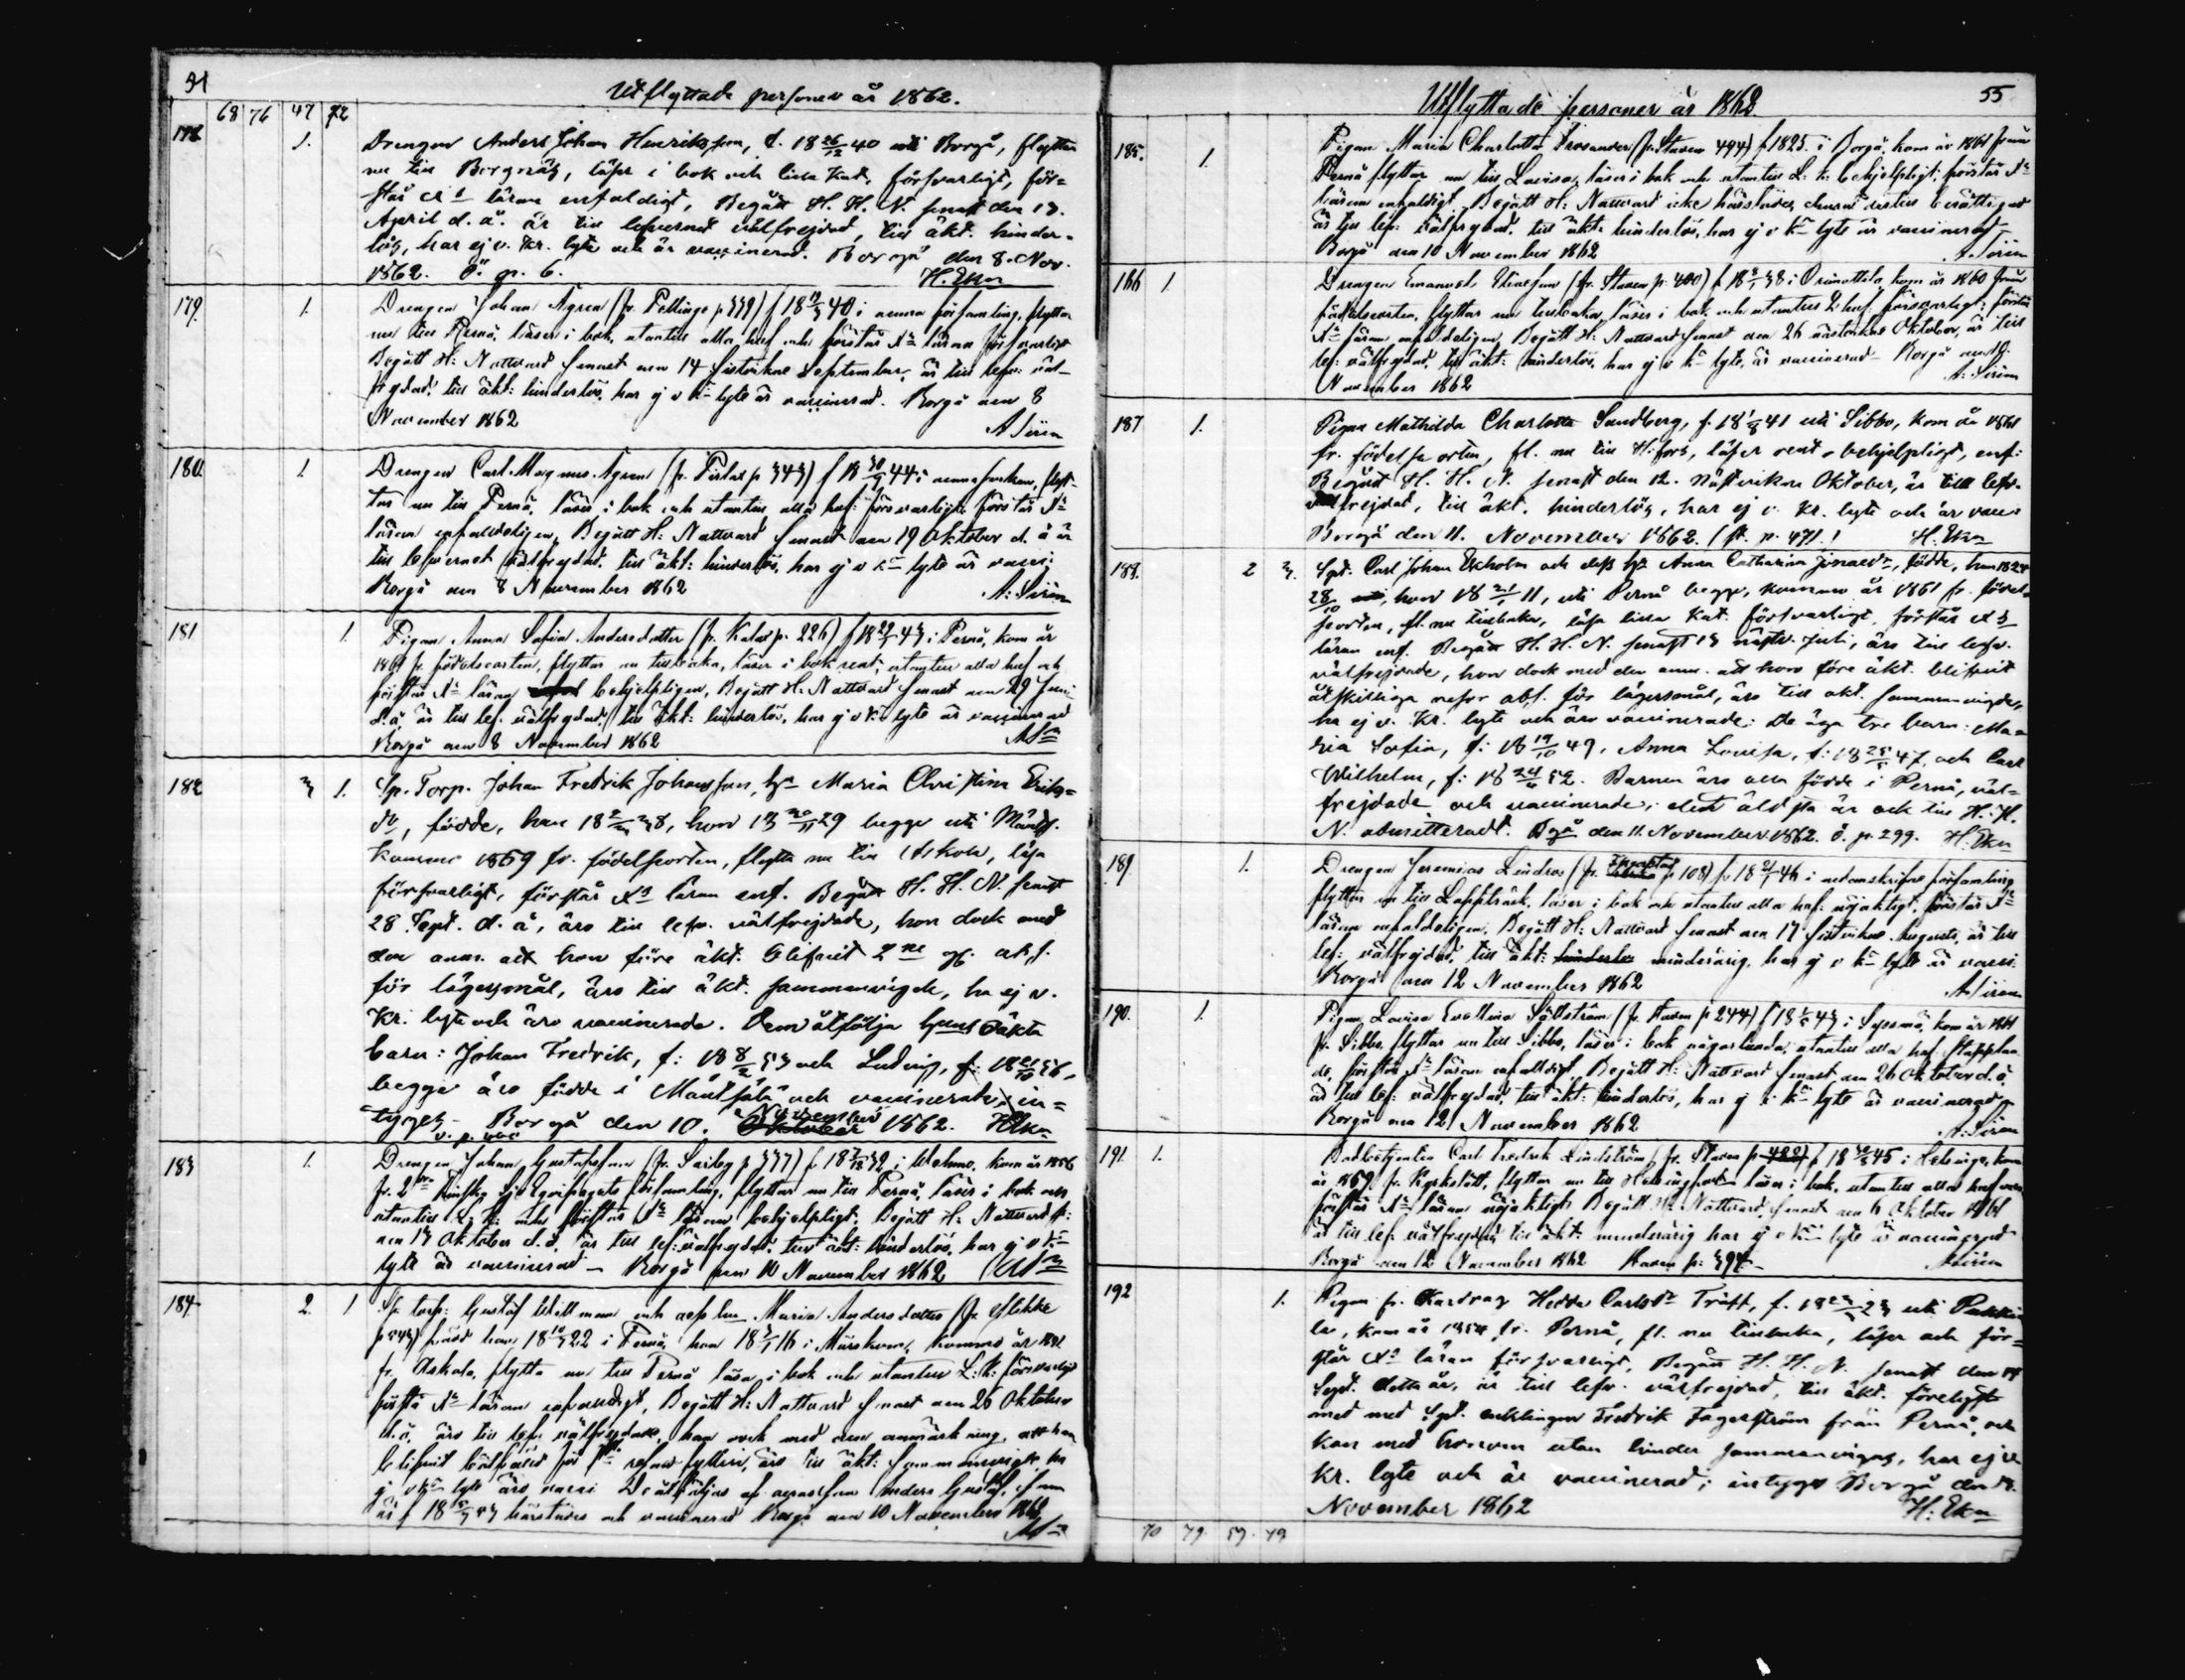 Utflyttade personer år 1862.
68 76 47 72
1.
Drengen Anders Johan Henriksson, f. 18 26/12 40 uti Borgå, flyttar
nu till Borgnäs, läser i bok och lilla Kat. försvarligt, för=
står Xi läran enfaldigt, Begått H. H. N. senast den 13.
April d. å. är till lefvernet välfrejdad, till äkt. hinder=
lös, har ej v. Kr. lyte och är vaccinerad. Borgå den 8. Nov.
1862. p. 6. H. Ekn
179. 1.
Drengen Johan Ågren (fr. Pellinge p 339) f 18 40 i denna församling, flyttar
nu till Pernå, läser i bok, utantill alla huf och förstår Xi läran försvarligt
Begått H: Nattvard senast den 14 sistvikne September, är till lefv: väl-
frejdad, till äkt: hinderlös, har ej v k lyte är vaccinerad. Borgå den 8
November 1862 A Sirén
180. 1.
Drengen Carl Magnus Ågren (fr. p 343) f 18 44 i denna församl., flyt-
tar nu till Pernå, läser i bok och utantill alla huf: försvarligt, förstår Xi
läran enfaldeligen, Begått H: Nattvard senast den 19 Oktober d. å är
till lefvernet välfrejdad, till äkt: hinderlös, har ej v k lyte är vacci:
Borgå den 8 November 1862 A: Sirén
181 1.
Pigan Anna Sofia Andersdotter (fr. p. 226) f 18 43 i Pernå, kom år
1861 fr. födelseorten, flyttar nu tillbaka, läser i bok rent, utantill alla huf och
förstår Xi läran behjelpligen, Begått H: Nattvard senast den 29 Juni
d. å. är till lef. välfrejdad, till äkt: hinderlös, har ej v k lyte är vaccinerad
Borgå den 8 November 1862
182 3 1.
Sp. Torp. Johan Fredrik Johansson, h Maria Christina Eriks=
dr, födde, han 18 28, hon 18 29 begge uti Mänts.
komne 1859 fr. födelseorten, flytta nu till Askola, läsa
försvarligt, förstår Xi läran enf. Begått H. H. N. senast
28 Sept. d. å, äro till lefv. välfrejdade, hon dock med
den anm. att hon före äkt. blifvit 2 ne gr. abs.
för lägersmål, äro till äkt. sammanvigde, ha ej v.
Kr. lyte och äro vaccinerade. Dem åtfölja oäkta
barn: Johan Fredrik, f: 18 8/2 53 och Ludvig, f: 18 21/10 56,
begge äro födde i Mäntsälä och vaccinerade, in=
tygas - Borgå den 10. November 1862. H Ekn
183 1.
Drengen Johan Gustafsson (fr. p 337) f 18 32 i, kom år 1856
fr. 2 Finska Sjö Equipagets församling, flyttar nu till Pernå, läser i bok och
utantill L: K: och förstår Xi läran behjelpligt, Begått H: Nattvard s:
den 13 Oktober d. å. är till lef: välfrejdad, till äkt: hinderlös, har ej v k
lyte är vaccinerad - Borgå den 10 November 1862
184. 2. 1
Sp. torp: Gustaf Wellman och dess hu Maria Andersdotter (fr
p 543) född han 18 22 i Pernå, hon 18 16 i Mörskom, komne år
fr. Askola, flytta nu till Pernå läsa i bok och utantill L: K: försvarligt
förstå Xi läran enfaldigt, Begått H: Nattvard senast den 26 Oktober
d. å, äro till lefv välfrejdade, han dock med den anmärkning, att han
blifvit bötfäld för resor fylleri, äro till äkt: sammanvigde ha
ej v k lyte äro vacci De åtföljas af Anders Gustaf, som
är f 18 53 härstädes och vaccinerad Borgå den 10 November 1862
Utflyttade personer år 1862. 55
185. 1.
Pigan Maria Charlotta (fr. Staden 494) f 1825 i Borgå, kom år 1861 från
Pernå flyttar nu till Lovisa, läser i bok och utantill L: k: behjelpligt; förstår Xi
läran enfaldigt Begått H: Nattvard icke härstädes
är till lef: välfrejdad, till äkt: hinderlös, har ej v k lyte är vaccinerad
Borgå den 10 November 1862 A. Sirén
186 1
Drengen Emanuel (fr. Staden p. 400) f 18 38 i Orimattila, kom år 1860 från
födelseorten, flyttar nu tillbaka, läser i bok och utantill 2 huf. försvarligt, förstår
Xi läran enfaldeligen, Begått H: Nattvard senast den 26 nästvikne Oktober, är till
lef: välfrejdad, till äkt: hinderlös, har ej v k lyte, är vaccinerad - Borgå den
November 1862 A: Sirén
187 1.
Pigan Mathilda Charlotta Sandberg, f. 18 1/8 41 uti Sibbo, kom år 1861
fr. födelseorten, fl. nu till H:fors, läser rent, behjelpligt, enf:
Begått H. H. N. senast den 12. nästvikne Oktober, är till lefv.
välfrejdad, till äkt. hinderlös, har ej v. Kr. lyte och är vacc:
Borgå den 11. November 1862. (St. p. 471.) H: Ekn
188. 2 3.
Spt. Carl Johan Ekholm och dess h Anna Catharina Jonasdr, födde, han 1824
28/10, hon 18 11, uti Pernå begge, komne år 1861 fr. födel-
seorten, fl. nu tillbaka, läsa lilla Kat. försvarligt, förstår Xi
läran enf. Begått H. H. N. senast 13 nästv. Juli, äro till lefv.
välfrejdade, hon dock med den anm. att hon före äkt. blifvit
åtskilliga resor abs. för lägersmål, äro till äkt. sammanvigde,
ha ej v. Kr. lyte och äro vaccinerade: De äga tre barn: Ma=
ria Sofia, f: 18 19/10 49, Anna Lovisa, f: 18 47, och Carl
Wilhelm, f: 18 52. Barnen äro alla födde i Pernå, väl=
frejdade och vaccinerade, det äldsta är ock till H. H.
N. admitteradt. Bgå den 11. November 1862. p. 299. H: Ekn
189. 1.
Drengen Jeremias Lindros (fr. p 108) f 18 46 i nedanskrifne församling
flyttar nu till Lappträsk, läser i bok och utantill alla huf: nöjaktigt, förstår Xi
läran enfaldeligen, Begått H: Nattvard senast den 17 sistvikne Augusti, är till
lef: välfrejdad, till äkt: minderårig, har ej v k lyte är vacci:
Borgå den 12 November 1862 A Sirén
190. 1.
Pigan Lovisa Evelina (fr. Staden p 244) f 18 43 i Sysmä, kom år 1861
fr. Sibbo, flyttar nu till Sibbo, läser i bok någorlunda, utantill alla huf. stapplan-
de, förstår Xi läran enfaldigt, Begått H: Nattvard senast den 26 Oktober d. å.
är till lef: välfrejdad, till äkt: hinderlös, har ej v k lyte är vaccinerad
Borgå den 12 November 1862 A: Sirén
191. 1.
Carl Fredrik Lindström (fr. Staden p 482) f 18 45 i Helsinge, kom
år 1859. fr. Kyrkslätt, flyttar nu till Helsingfors läser i bok, utantill alla huf och
förstår Xi läran nöjaktigt Begått H: Nattvard senast den 6 Oktober 1861
är till lef. välfrejdad till äkt: minderårig har ej v k lyte är vaccinerad
Borgå den 12 November 1862 Staden p: 394 A Sirén
192 1.
Pigan fr. Hedda Carlsdr Träff, f. 18 23 uti
la, kom år 1854 fr. Pernå, fl. nu tillbaka, läser och för=
står Xi läran försvarligt, Begått H. H. N. senast den 14
Sept. detta år, är till lefv. välfrejdad, till äkt. förelyst
med med Spt. enklingen Fredrik Fagerström från Pernå, och
kan med honom utan hinder sammanvigas, har ej v.
Kr. lyte och är vaccinerad; intygas Borgå den
November 1862 H: Ekn
70 79. 59. 79